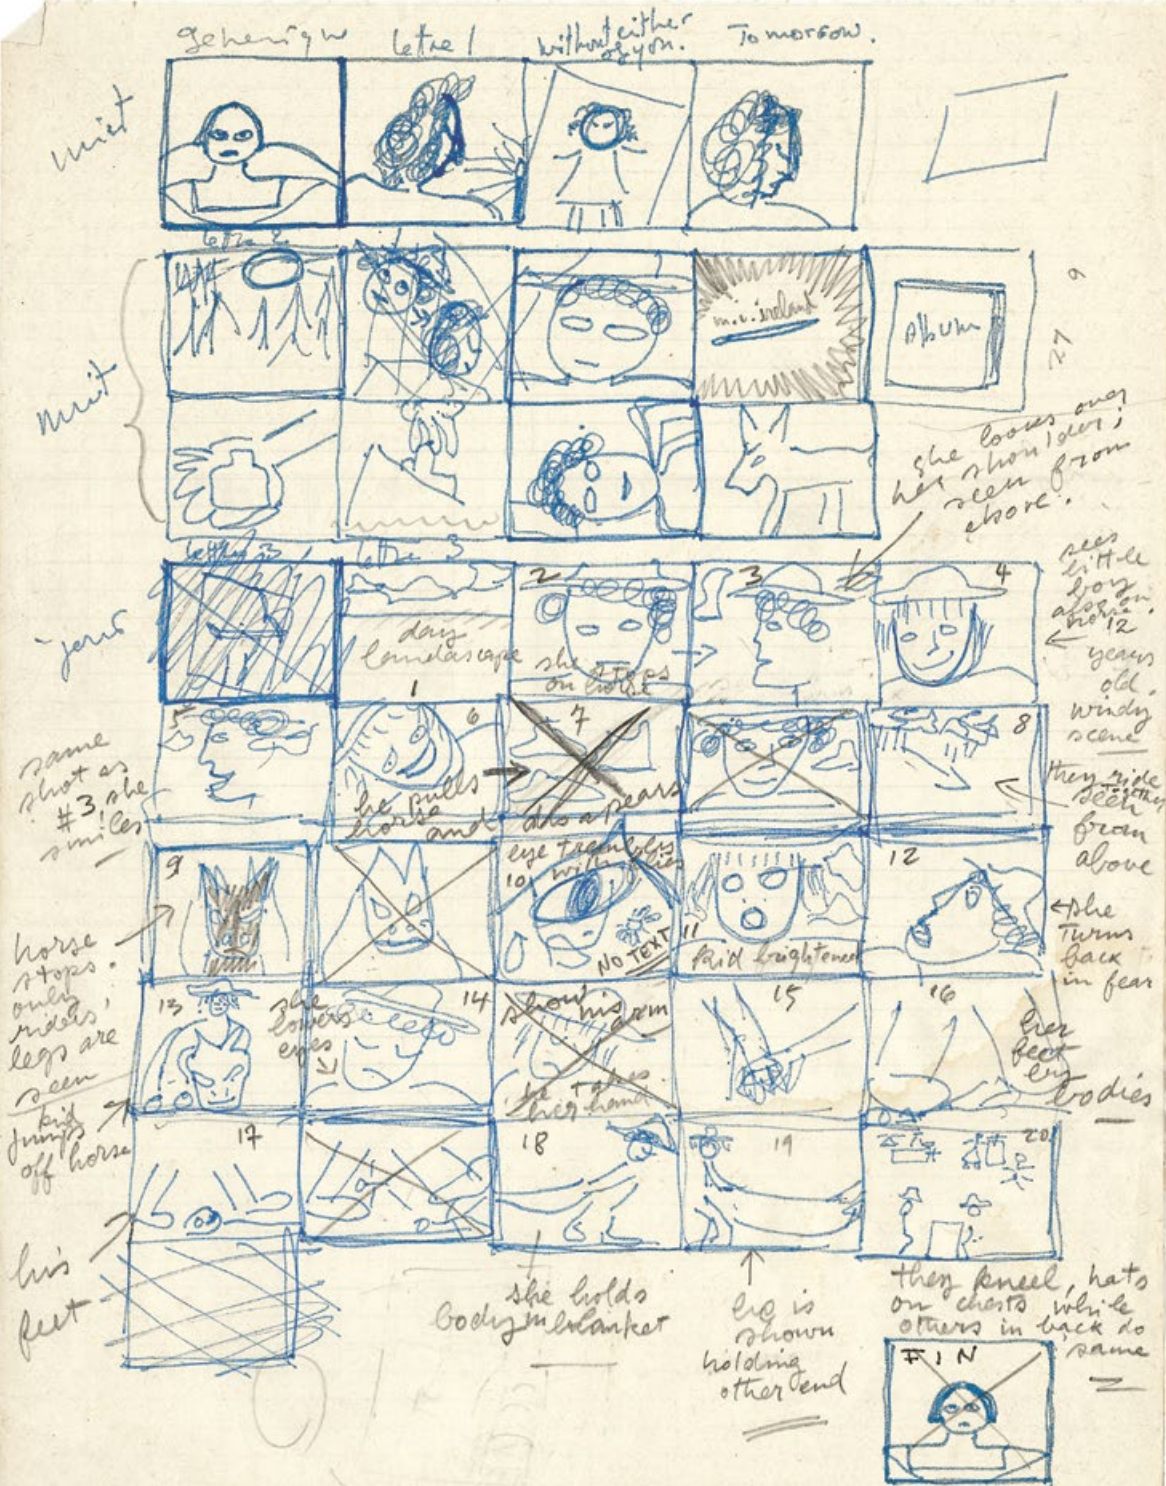 generique
lettre 1
without either
of you.
Tomorrow.
nuit
lettre 2
m.v. ireland
Album
9
27
nuit
she looks over
her shoulder;
seen from
above.
lettre 3
lettre 3
jour
day
landscape
1
2
she stops
on horse
3
4
sees
little
boy
also on
horse.
12
years
old.
windy
scene
same
shot as
#3, she
smiles
5
6
he pulls
horse
and
7
disapears
8
they ride
seen
from
above
9
horse
stops.
only
riders,
legs are
seen
eye trembles
with flies
10
NO TEXT
11
kid brightened
12
she
turns
back
in fear
13
kid
jumps
off horse
she
lowers
eyes
14
show his arm
he takes
her hand
15
16
her
feet
by
bodies
17
his
feet
18
she holds
body in blanket
19
he is
shown
holding
other end
20
they kneel, hats
on chests while
others in back do
same
FIN